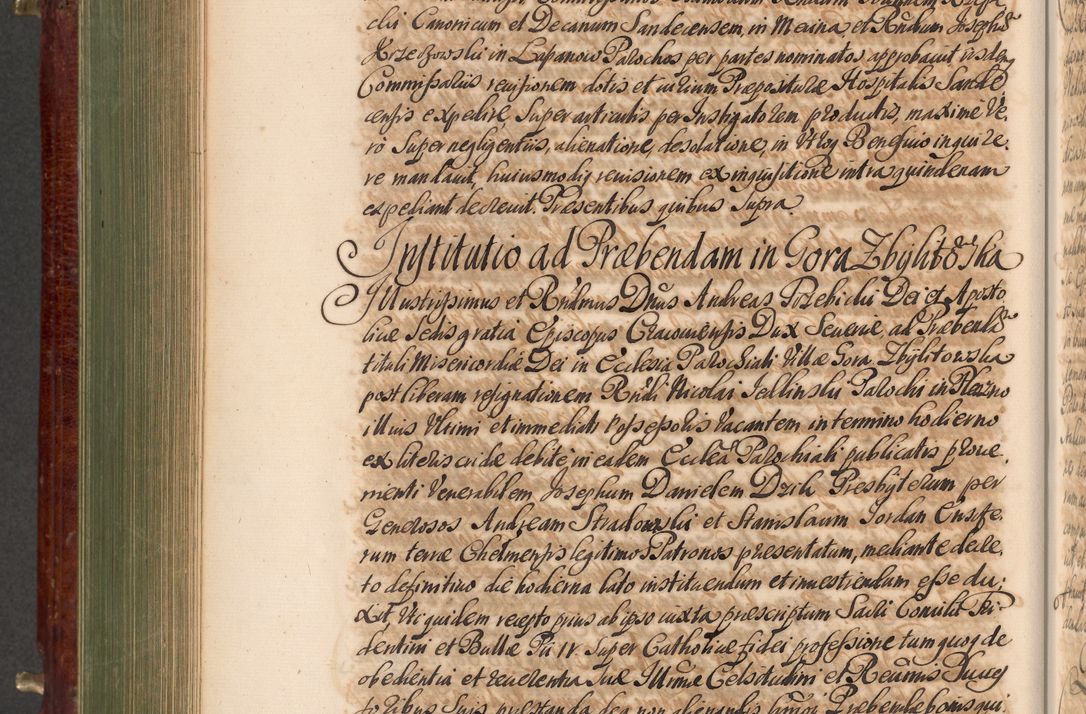 chi Canonicum et Decanum Sandecensem, in Mecina, et Rndum Josephū
Krzeszowski in Łapanow Parochos per partes nominatos approbavit iisdemq
Commissariis revisionem dotis et jurium Præposituræ Hospitalis Sande
censis expedire Super articulis per Instigatorem productis, maxime Ve,
rò Super negligentiis, alienatione, desolatione, in Utroq Beneficio inquire,
re mandavit, huiusmodiq revisionem ex inquisitione intra quindenam
expediant decrevit. Præsentibus quibus Supra.
Institutio ad Præbendam in Gora Zbylitowska
Illustrissimus et Rndmus Dnus Andreas Trzebicki Dei et Aposto
licæ Sedis gratia Episcopus Cracoviensis Dux Severiæ, ad Præbendā
tituli Misericordiæ Dei in Ecclesia Parochiali Villæ Gora Zbylitowska
post liberam resignationem Rndi Nicolai Jellinski Parochi in
illius Ultimi et immediati Possessoris Vacantem in termino hodierno
ex literis cridæ debitè in eadem Ecclea Parochiali publicatis prove,
nienti Venerabilem Josephum Danielem Presbyterum per
Generosos Andream Stradowski et Stanislaum Jordan Ensife,
rum terræ Chelmensis legitimos Patronos præsentatum, mediante decre,
to definitivo die hodierna lato instituendum et investiendum esse du,
xit, Uti quidem recepto prius ab ipso iuxta præscriptum Sacri Concilii Tri,
dentini et Bullæ Pii IV. Super Catholicæ fidei professione tum quoq de
obedientia et reverentia Suæ Illmæ Celsitudini et Reverendissimis
toribus Suis præstanda deq non alienandis Præbendæ bonis qui,